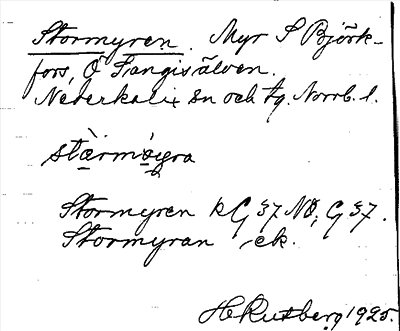 Stormyren. Myr S Björk-
fors, Ö Fangisälven.
Nederkalix sn och tg. Norrb. l.
stɷ̀rmỳra
Stormyren kG 37 NÖ; G 37.
Stormyran ek.
H Rutberg 1925.